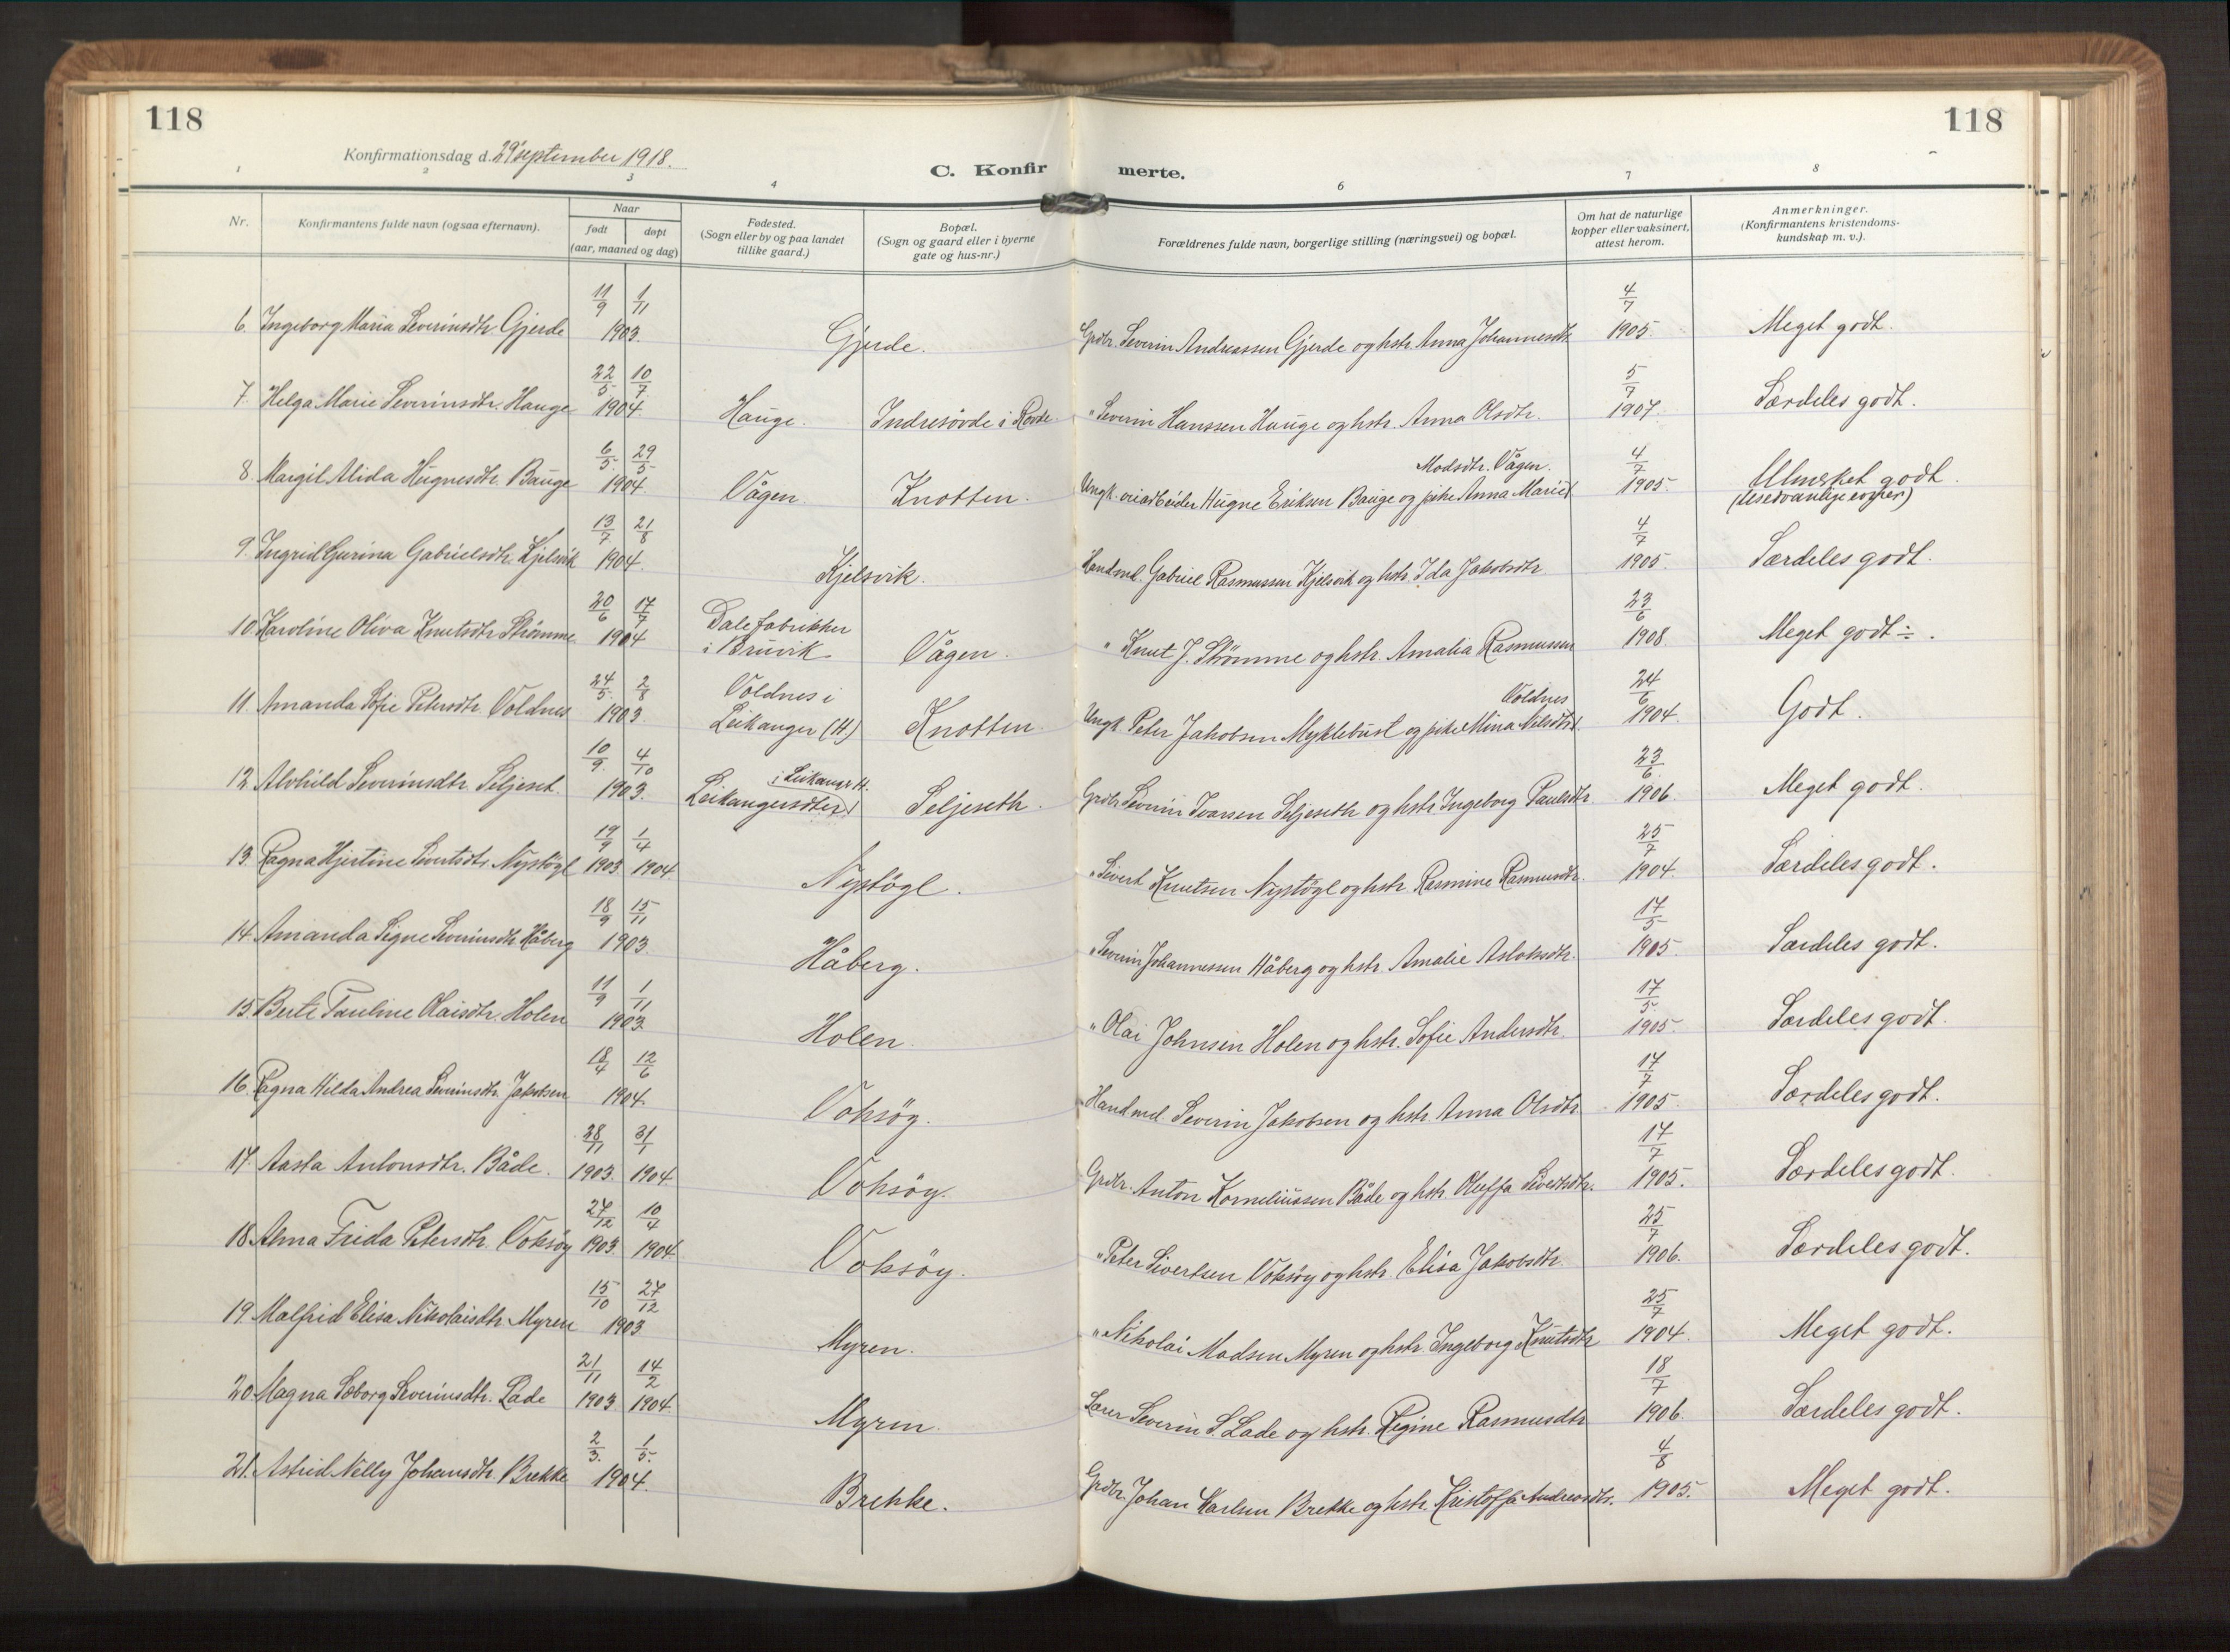 118
118
Konfirmationsdag d. 29 september 1918.
C. Konfir merte.
1 2 3 4 6 7 8
Nr.
Konfirmantens fulde navn (ogsaa efternavn).
Naar
født døpt
(aar, maaned og dag)
Fødested.
(Sogn eller by og paa landet
tillike gaard.)
Bopæl.
(Sogn og gaard eller i byerne
gate og hus-nr.)
Forældrenes fulde navn, borgerlige stilling (næringsvei) og bopæl.
Om hat de naturlige
kopper eller vaksinert,
attest herom.
Anmerkninger.
(Konfirmantens kristendoms-
kundskap m. v.).
11/9 1/11 4/7
6. Ingeborg Maria Severinsdtr. Gjerde 1903. Gjerde. Grdbr. Severin Andreassen Gjerde og hstr. Anna Johannesdtr. 1905. Meget godt.
22/5 10/7 5/7
7. Helga Marie Severinsdtr. Hauge 1904. Hauge. Indresövde i Rovde. " Severin Hanssen Hauge og hstr. Anna Olsdtr. 1907. Særdeles godt.
6/5 29/5 Madsdtr. Vågen. 4/7
8. Margit Alida Hugnesdtr. Bauge 1904. Vågen. Knotten. Ungk. Hugne Eriksen Bauge og pike Anna Marie 1905. Utmerket godt.
13/7 21/8 4/7
9. Ingrid Gurina Gabrielsdtr. Kjelsvik 1904. Kjelsvik. Handmd. Gabriel Rasmussen Kjelsvik og hstr. Ida Jakobsdtr. 1905. Særdeles godt.
20/6 17/7 Dale fabrikker 23/6
10. Karoline Oliva Knutsdtr. Strömme 1904 i Bruvik Vågen. " Knut J. Strömme og hstr. Amalia Rasmussen 1908. Meget godt ÷.
24/5 2/8 Voldnes i Voldnes 24/6
11. Amanda Sofie Petersdtr. Voldnes 1903. Leikanger (H.) Knotten. Ungk. Peter Jakobsen Myklebust og pike Mina Nilsdtr. 1904. Godt.
10/9 4/10 i Leikanger H. 23/6
12. Alvhild Severinsdtr. Seljeset. 1903. Seljeseth. Grdbr. Severin Ivarsen Seljeseth og hstr. Ingeborg Paulsdtr. 1906. Meget godt.
19/9 1/4 25/7
13. Ragna Hjertine Sivertsdtr. Nystögl 1903 1904. Nystögl. " Sivert Knutsen Nystögl og hstr. Rasmine Rasmusdtr. 1904. Særdeles godt.
18/9 15/11 17/5
14. Amanda Signe Severinsdtr. Håberg 1903. Håberg. " Severin Johannessen Håberg og hstr. Amalie Aslaksdtr. 1905. Særdeles godt.
11/9 1/11 17/5
15. Berte Pauline Olaisdtr. Holen 1903. Holen. " Olai Johnsen Holen og hstr. Sofie Andersdtr. 1905. Særdeles godt.
18/4 12/6 17/7
16. Ragna Hilda Andrea Severinsdtr. Jakobsen 1904. Voksöy. Handmd. Severin Jakobsen og hstr. Anna Olsdtr. 1905. Særdeles godt.
28/11 31/1 17/7
17. Aasta Antonsdtr. Både. 1903. 1904. Voksöy. Grdbr. Anton Korneliussen Både og hstr. Oluffa Sivertsdtr. 1905. Særdeles godt.
27/12 10/4 25/7
18. Alma Frida Petersdtr. Voksöy 1903. 1904. Voksöy. " Peter Sivertsen Voksöy og hstr. Elisa Jakobsdtr. 1906. Særdeles godt.
15/10 27/12 25/7
19. Malfrid Elisa Nikolaisdtr. Myren 1903 Myren. " Nikolai Madsen Myren og hstr. Ingeborg Knutsdtr. 1904. Meget godt.
21/11 14/2 18/7
20. Magna Seborg Severinsdtr. Lade 1903 1904. Myren. Lærer Severin S. Lade og hstr. Regine Rasmusdtr. 1906. Særdeles godt.
2/3 1/5 4/8
21. Astrid Nelly Johansdtr. Brekke 1904. Brekke. Grdbr. Johan Karlsen Brekke og hstr. Kristoffa Andreasdtr. 1905. Meget godt.